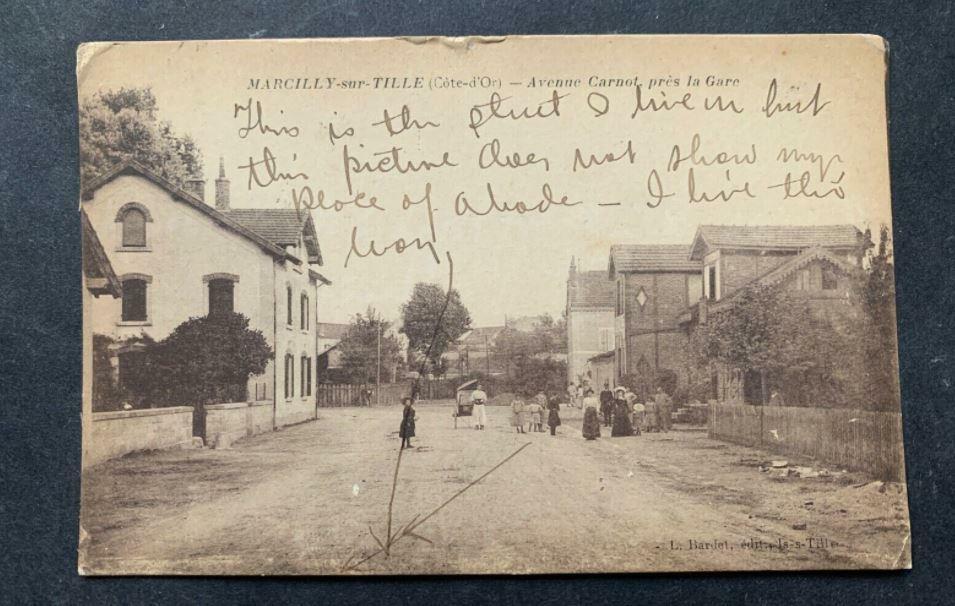 MARCILLY-sur-TILLE (Côte-d'Or) — Avenue Carnot, près la Gare
This is the street I live in but
this picture does not show my
place of abode — I live this
way
L. Bardet, édit., Is-s-Tille